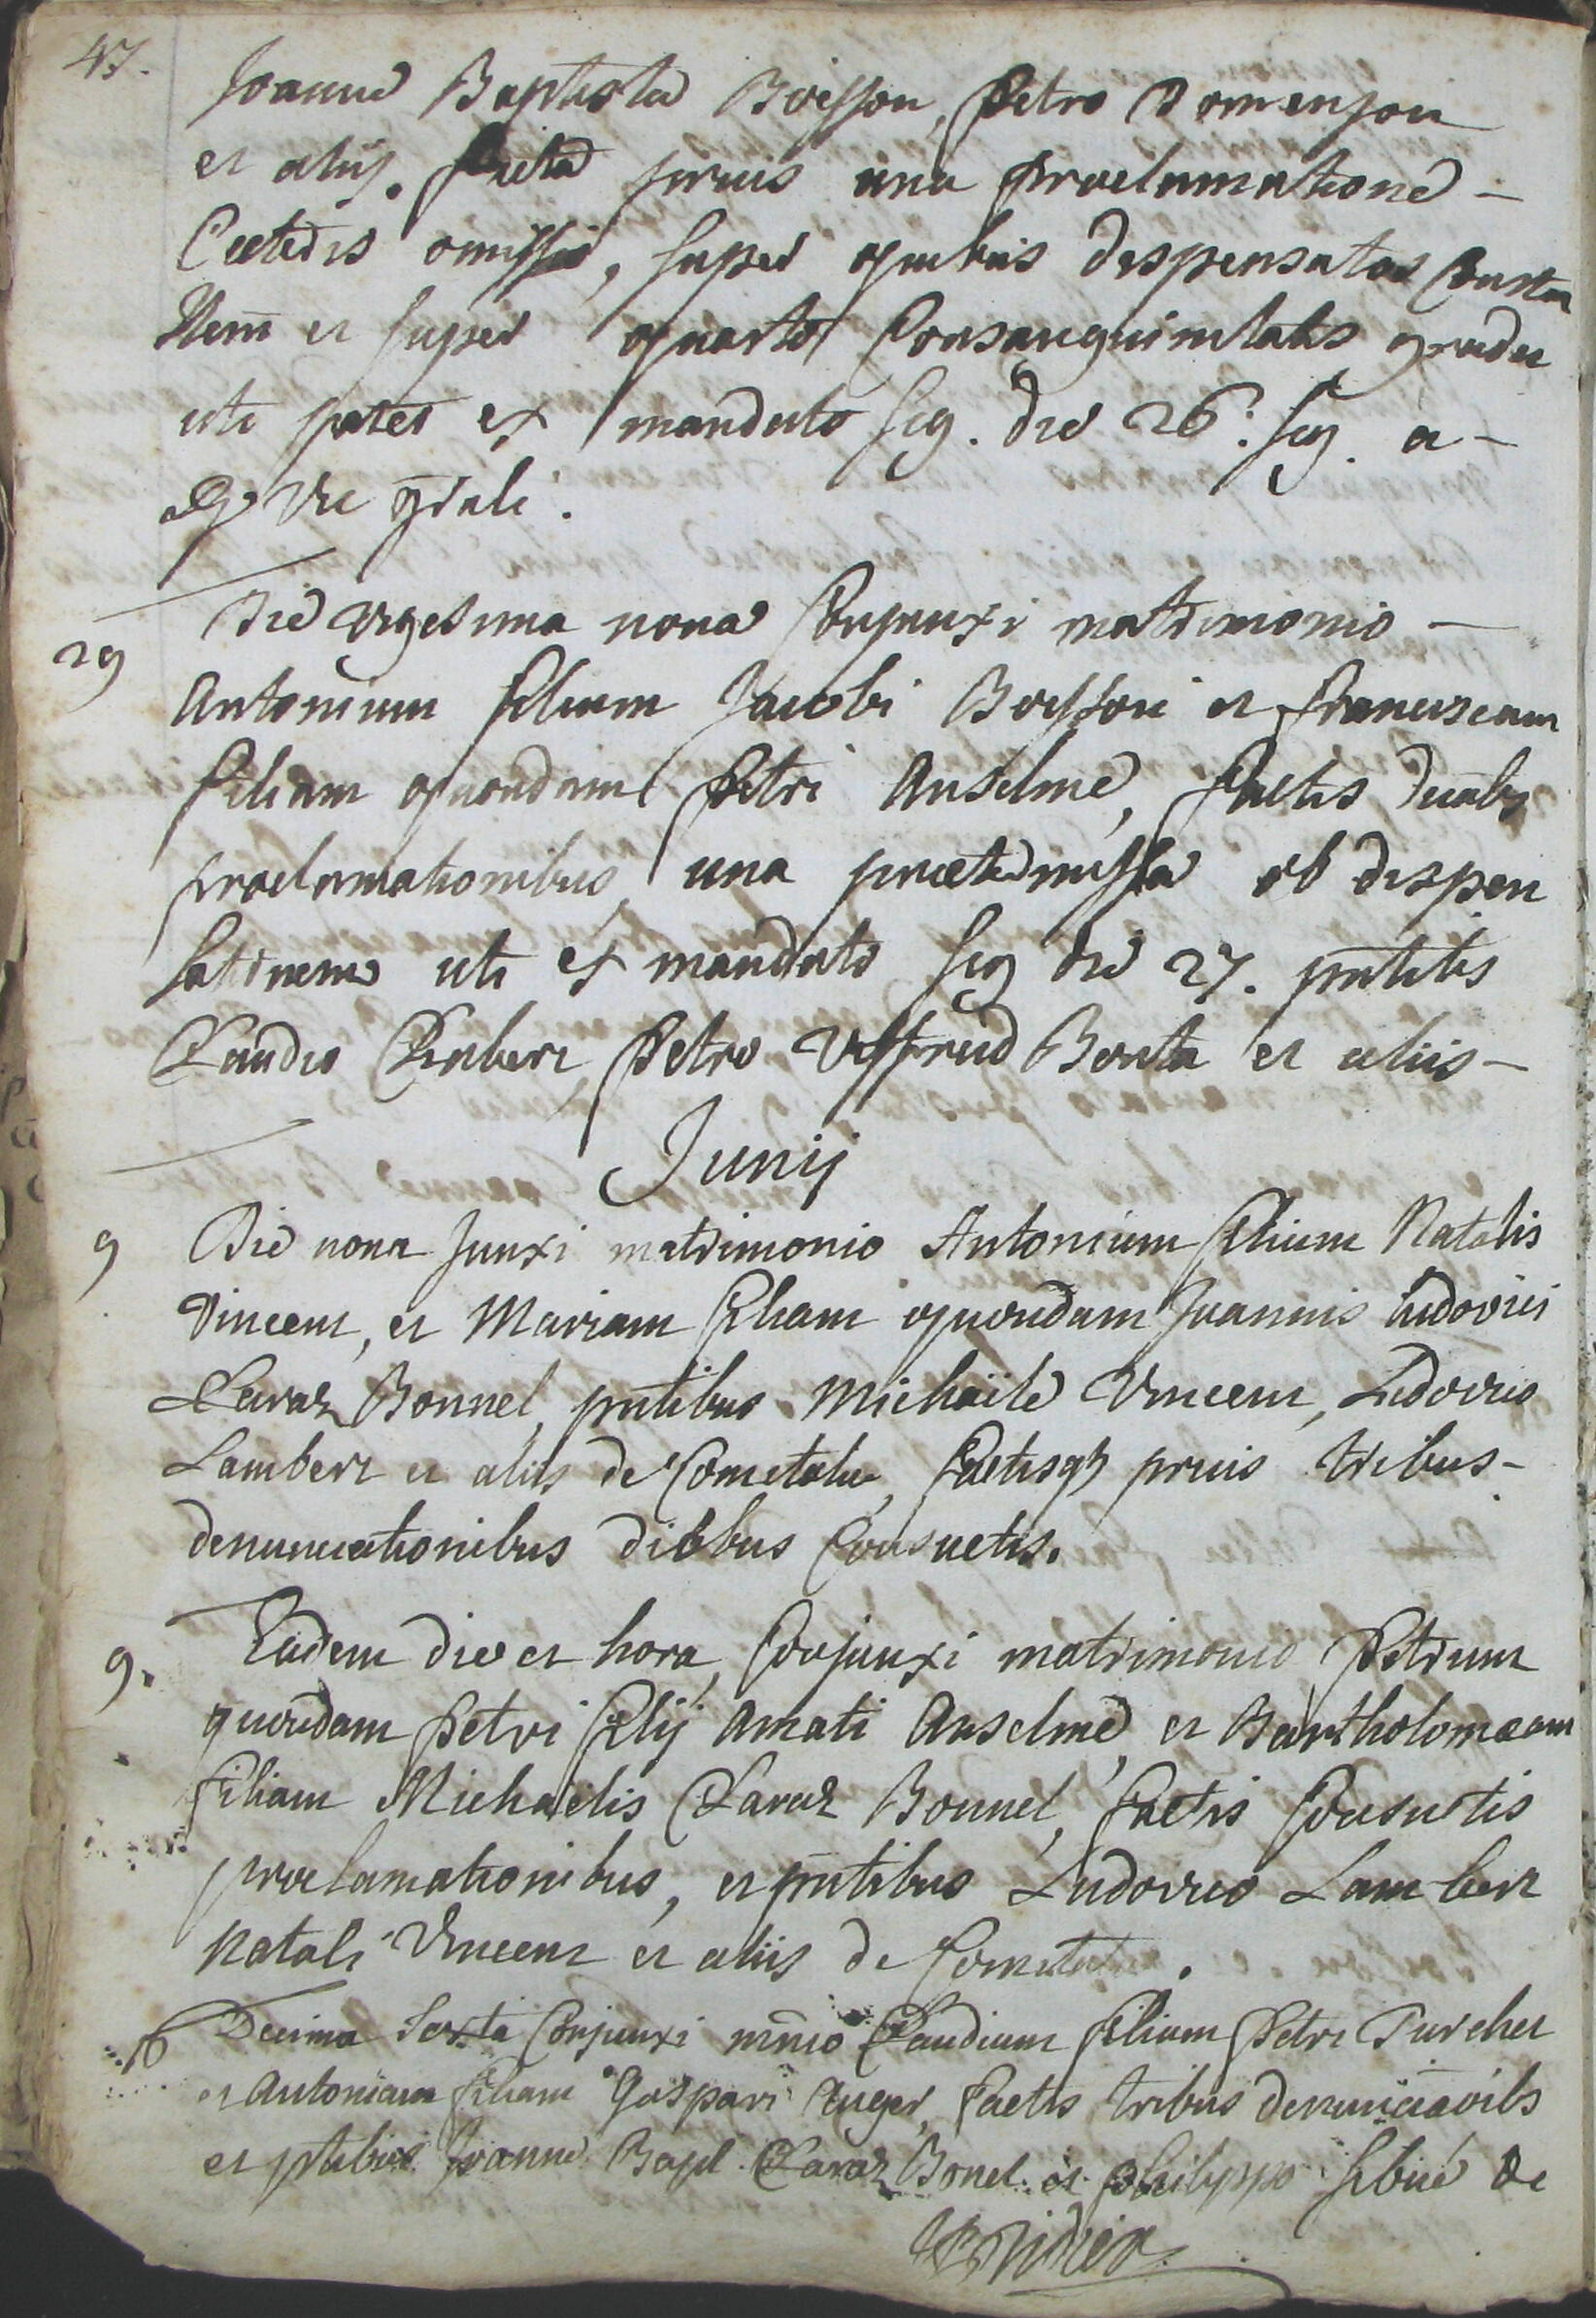 47.
Joanne Baptista Boisson, Petro Domenjon
et alijs. facta prius una proclamatione -
Cæteris omissis, super quibus dispensatos constat
Item et super quarto Consanguinitatis gradu
uti patet ex mandato sig. die 26: sig. a -
Vic gnali.
29 Die vigesima nona Conjunxi matrimonio -
Antonium filium Jacobi Boisson et franciscam
filiam quondam Petri Anselme, factis duabs
proclamationibus, una prætermissa ob dispen
sationem uti ex mandato sig die 27. pntibs
Claudio Petro Borita et aliis -
Junij
9 Die nona Junxi matrimonio Antonium filium Natalis
Vincent, et Mariam filiam quondam Joannis Ludovici
Claraz Bonnel, pntibus Michaële Vincent, Ludovico
Lambert et aliis de Comitatu, factisqs prius tribus -
denunciationibus diebus Consuetis.
9. Eadem die et hora, Conjunxi matrimonio Petrum
quondam Petri filij Amati Anselme, et Bartholomæam
filiam Michaëlis Claraz Bonnel, factis Consuetis
proclamationibus, et pntibus Ludovico Lambert
Natali Vincent et aliis de Comitatu.
16 Decima Sexta Conjunxi mnio Claudium filium Petri Turcher
et Antoniam filiam Gaspari factis tribus denunciaoibs
et ptibus Joanne Bapt. Claraz Bonel et philippo de